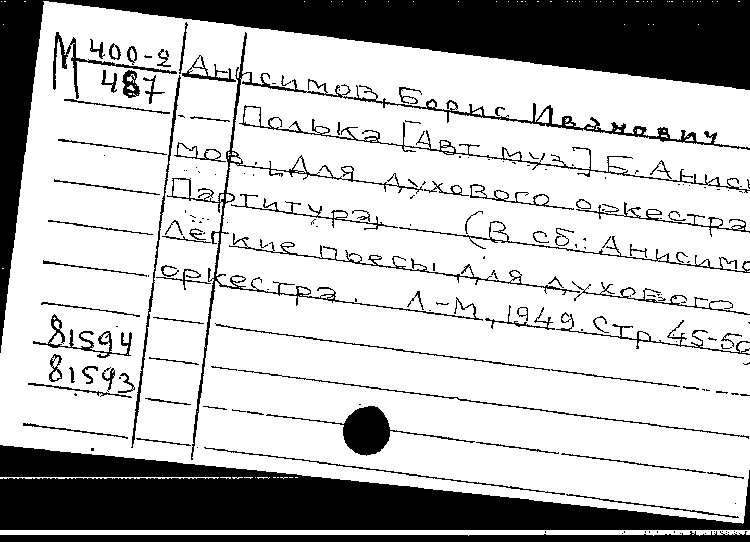 М 400-2
487
Анисимов, Борис Иванович
Полька [Авт. муз.] Б. Аниси
мов. Для духового оркестра
Партитура. (В сб.: Анисимо
Легкие пьесы для духового
оркестра. Л.-М., 1949. Стр. 45-50
81594
81593